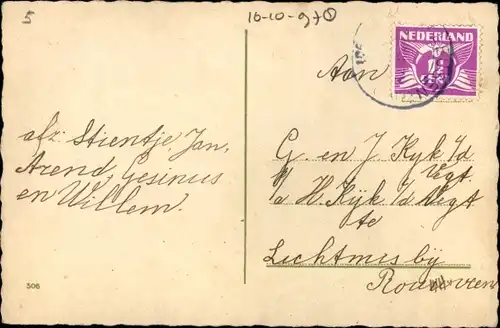 5
16-10-97 ①
NEDERLAND
Aan
afz: Stientje, Jan,
Arend, Gesinus
en Willem.
G. en J. Kyk i/d
Vegt.
p/a H. Kyk i/d Vegt
te
Lichtmis bij
Rouveen
506